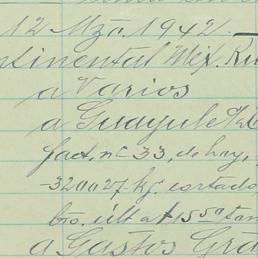 12 Mzo. 1942.
ntinental Mex. Ru
a Varios
a Guayule
fact. nº 33, de hoy,
-320027 kg. cortado
bto. últ at 155º tan
a Gastos Gra